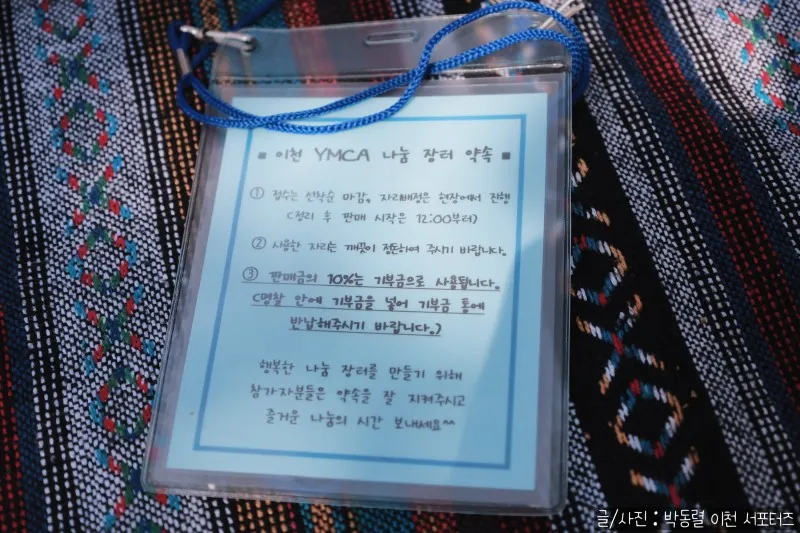 ■ 이천 YMCA 나눔 장터 약속 ■
① 접수는 선착순 마감, 자리배정은 현장에서 진행
(정리 후 판매 시작은 12:00부터)
② 사용한 자리는 깨끗이 정돈하여 주시기 바랍니다.
③ 판매금의 10%는 기부금으로 사용됩니다.
(명찰 안에 기부금을 넣어 기부금 통에
반납해주시기 바랍니다.)
행복한 나눔 장터를 만들기 위해
참가자분들은 약속을 잘 지켜주시고
즐거운 나눔의 시간 보내세요^^
글/사진 : 박동렬 이천 서포터즈